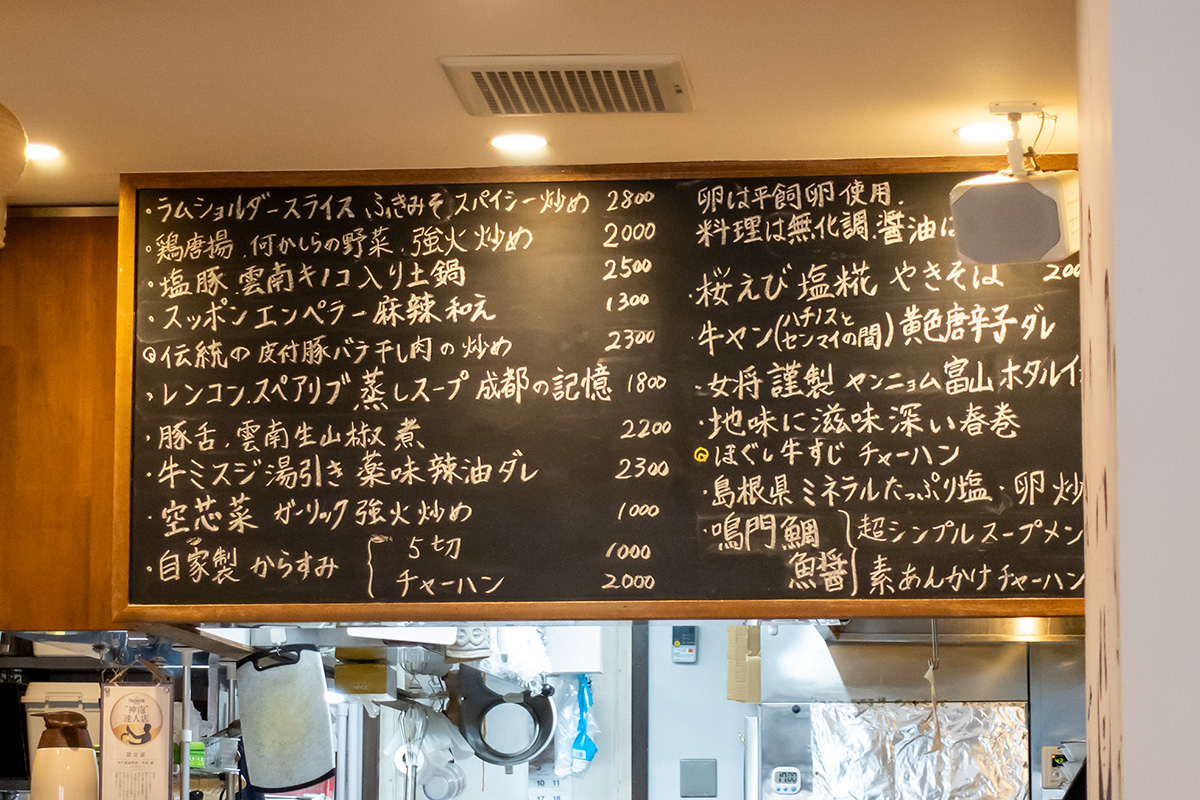 ・ラムショルダースライス ふきみそ スパイシー炒め 2800
・鶏唐揚.何かしらの野菜.強火炒め 2000
・塩豚.雲南キノコ入り土鍋 2500
・スッポンエンペラー麻辣和え 1300
伝統の皮付豚バラ干し肉の炒め 2300
・レンコン.スペアリブ蒸しスープ 成都の記憶 1800
・豚舌.雲南生山椒煮 2200
・牛ミスジ湯引き 薬味辣油ダレ 2300
・空芯菜 ガーリック強火炒め 1000
・自家製 からすみ
5切 1000
チャーハン 2000
卵は平飼卵使用.
料理は無化調.醤油は
・桜えび 塩糀 やきそば 200
・牛ヤン(ハチノスとセンマイの間)黄色唐辛子ダレ
・女将 謹製 ヤンニョム富山ホタルイ
・地味に滋味深い春巻
ほぐし牛すじ チャーハン
・島根県ミネラルたっぷり塩・卵炒
・鳴門鯛
魚醤
超シンプルスープメン
素あんかけチャーハン
"神泡"
達人店
10 11
17 18